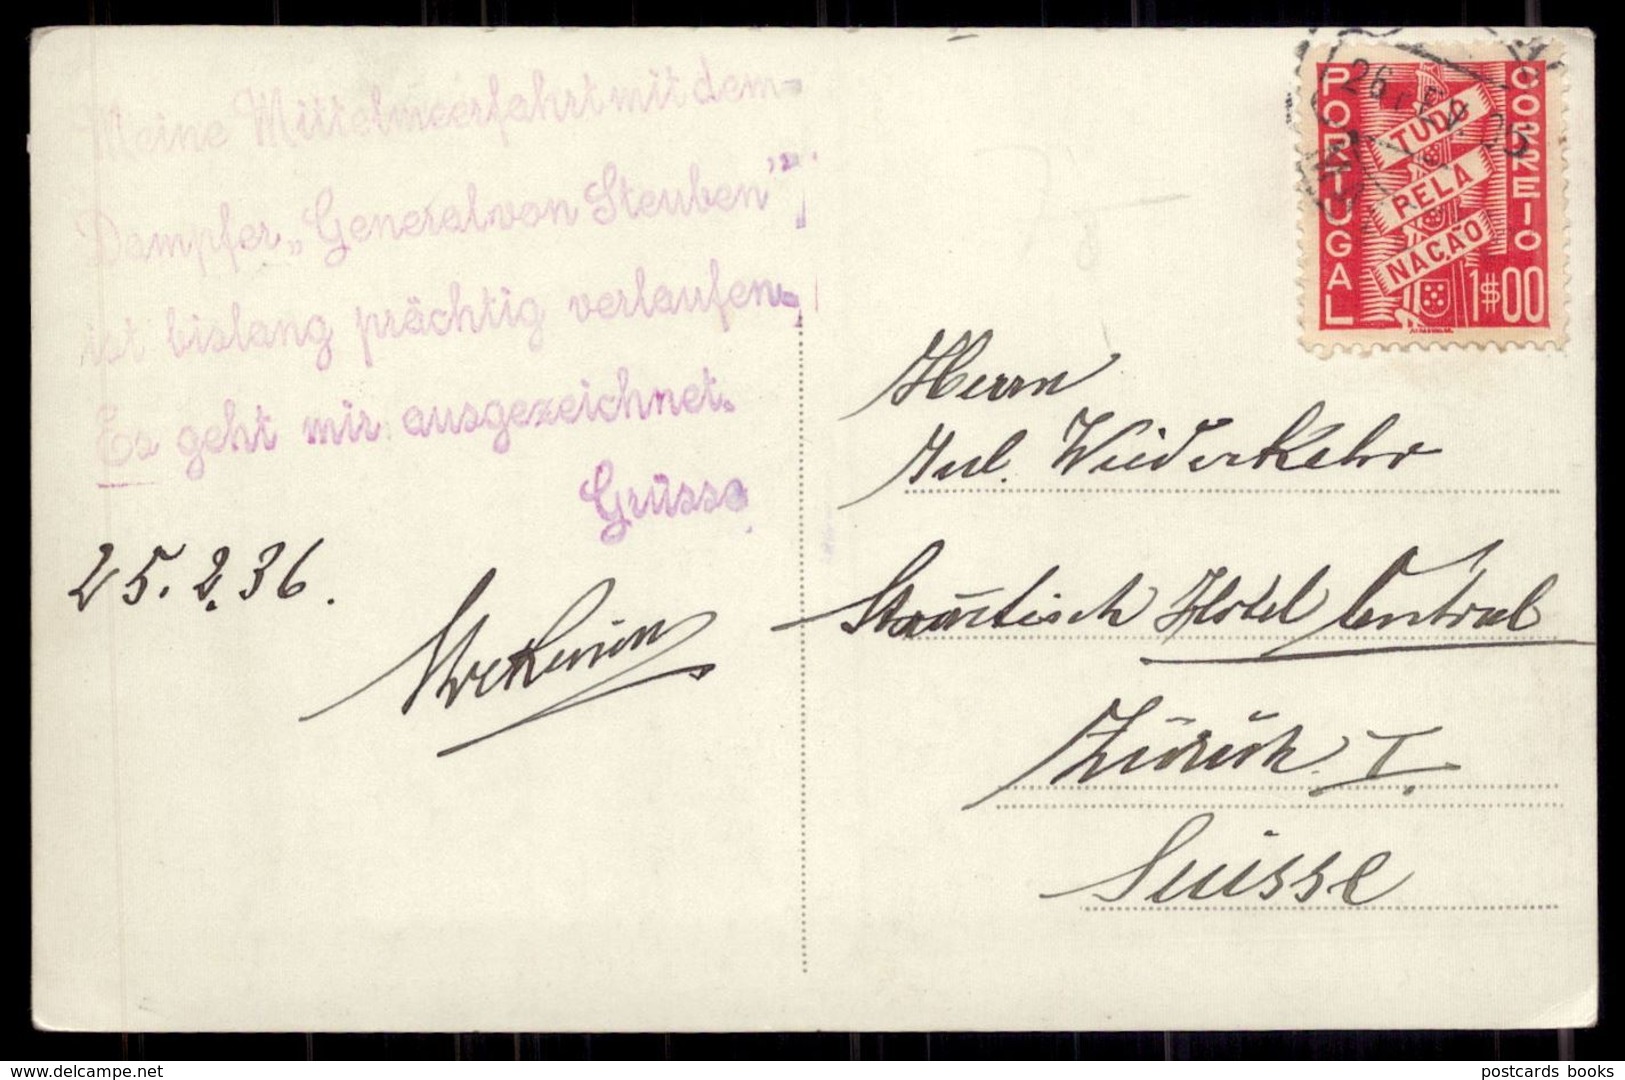 Meine Mittelmeerfahrt mit dem-
Dampfer „General von Steuben"
ist bislang prächtig verlaufen.
Es geht mir ausgezeichnet.
Grüsse
25.2.36.
PORTUGAL
CORREIO
TUDO
PELA
NAÇÃO
1$00
26
Herrn
Jul. Wiederkehr
Hotel Central
Zürich I.
Suisse
delcampe.net
postcards books